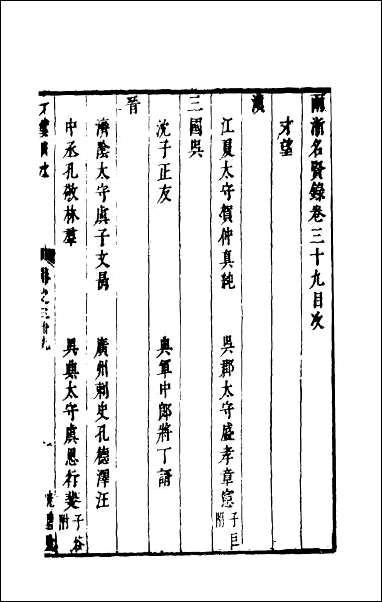 兩浙名賢錄卷三十九目次
才望
漢
江夏太守賀仲真純
吳郡太守盛孝章憲子匡附
三國吳
沈子正友
典軍中郎將丁諝
晉
濟陰太守虞子文長
廣州刺史孔德澤汪
中丞孔敬林羣
吳興太守虞思行斐子谷附
卷之三十九